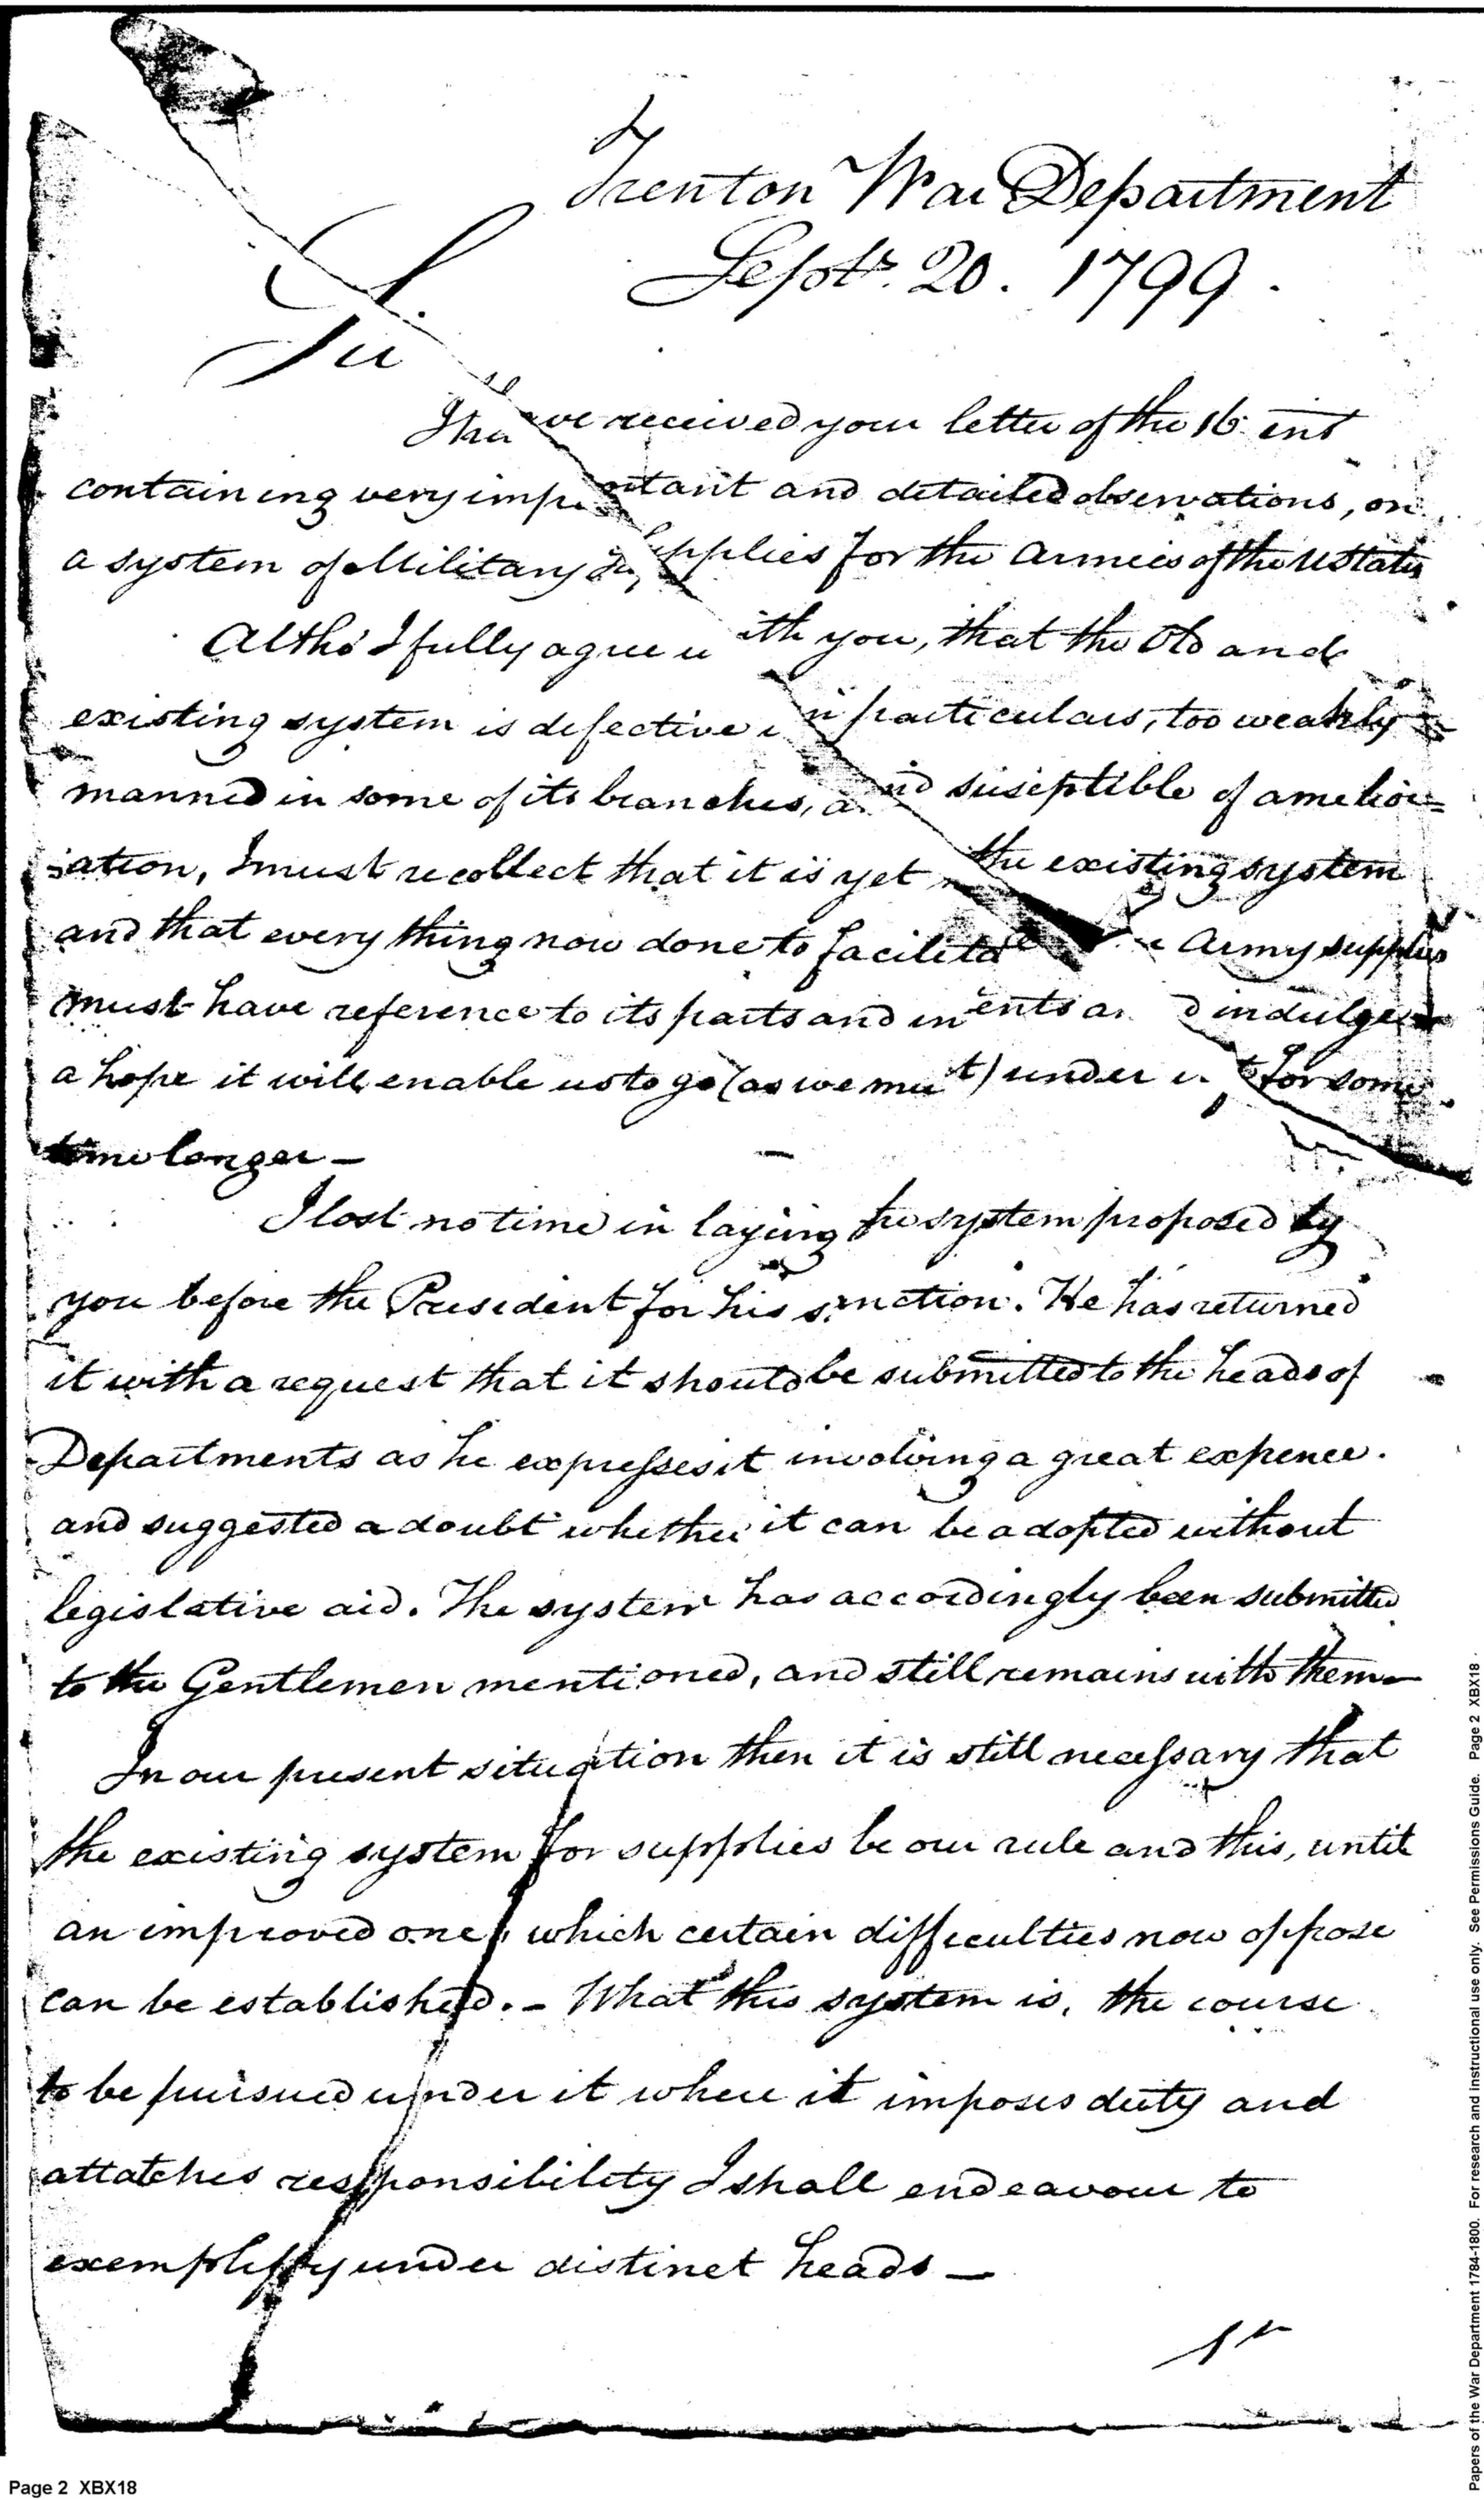 Trenton War Department
Septr. 20. 1799.
Sir
I have received your letter of the 16 inst
containing very important and detailed observations, on
a system of Military Supplies for the Armies of the UStates
Altho' I fully agree with you, that the Old and
existing system is defective in particulars, too weakly
manned in some of its branches, and suseptible of amelior=
=ation, I must recollect that it is yet the existing system
and that every thing now done to facilitate Army supplies
must have reference to its parts and indulge
a hope it will enable us to go (as we must) under it for some
time longer —
I lost no time in laying the system proposed by
you before the President for his sanction. He has returned
it with a request that it should be submitted to the heads of
Departments as he expresses it involving a great expence.
and suggested a doubt whether it can be adopted without
legislative aid. The system has accordingly been submitted
to the Gentlemen mentioned, and still remains with them—
In our present situation then it is still necessary that
the existing system for supplies be our rule and this, until
an improved one, which certain difficulties now oppose
can be established. – What this system is, the course
to be pursued under it where it imposes duty and
attatches responsibility I shall endeavour to
exemplify under distinct heads —
1st
Page 2 XBX18
Papers of the War Department 1784-1800. For research and instructional use only. See Permissions Guide. Page 2 XBX18